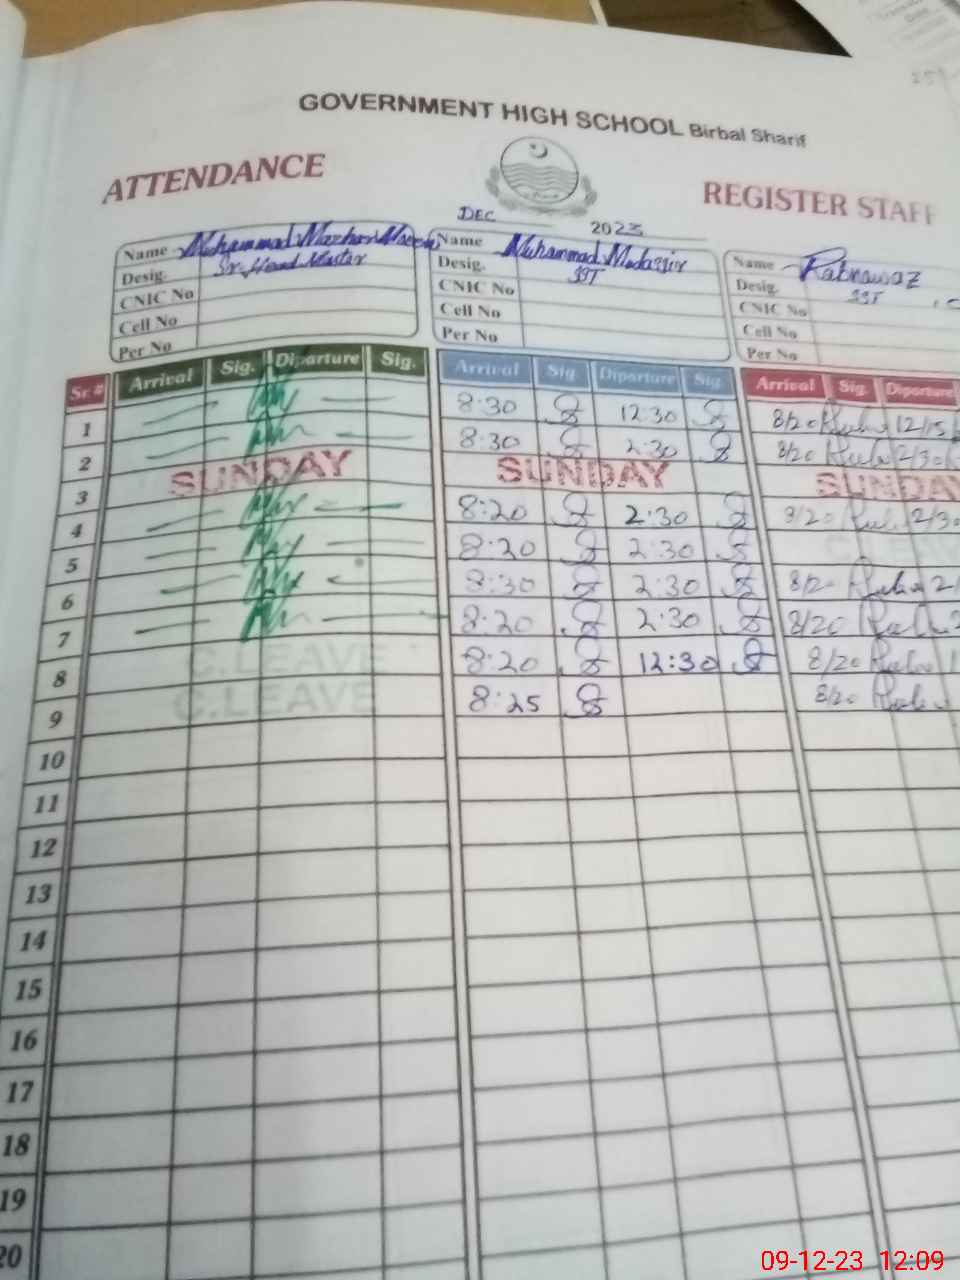 GOVERNMENT HIGH SCHOOL Birbal Sharif
ATTENDANCE
REGISTER STAFF
DEC 2023
Name Muhammad Mazhar Name Muhammad Mudassir Name Rabnawaz
Desig. Sr. Head Master Desig. SST Desig. SST
CNIC No CNIC No CNIC No
Cell No Cell No Cell No
Per No Per No Per No
Sr # Arrival Sig. Diparture Sig. Arrival Sig Diparture Sig. Arrival Sig. Diparture
1 8:30 12:30 8/20 12/15
2 8:30 2:30 8/20 2/30
3 SUNDAY SUNDAY SUNDAY
4 8:20 2:30 8/20 2/30
5 8:20 2:30 C.LEAVE
6 8:30 2:30 8/20 2/
7 8:20 2:30 8/20
8 C.LEAVE 8:20 12:30 8/20
9 C.LEAVE 8:25 8/20
10
11
12
13
14
15
16
17
18
19
20
09-12-23 12:09